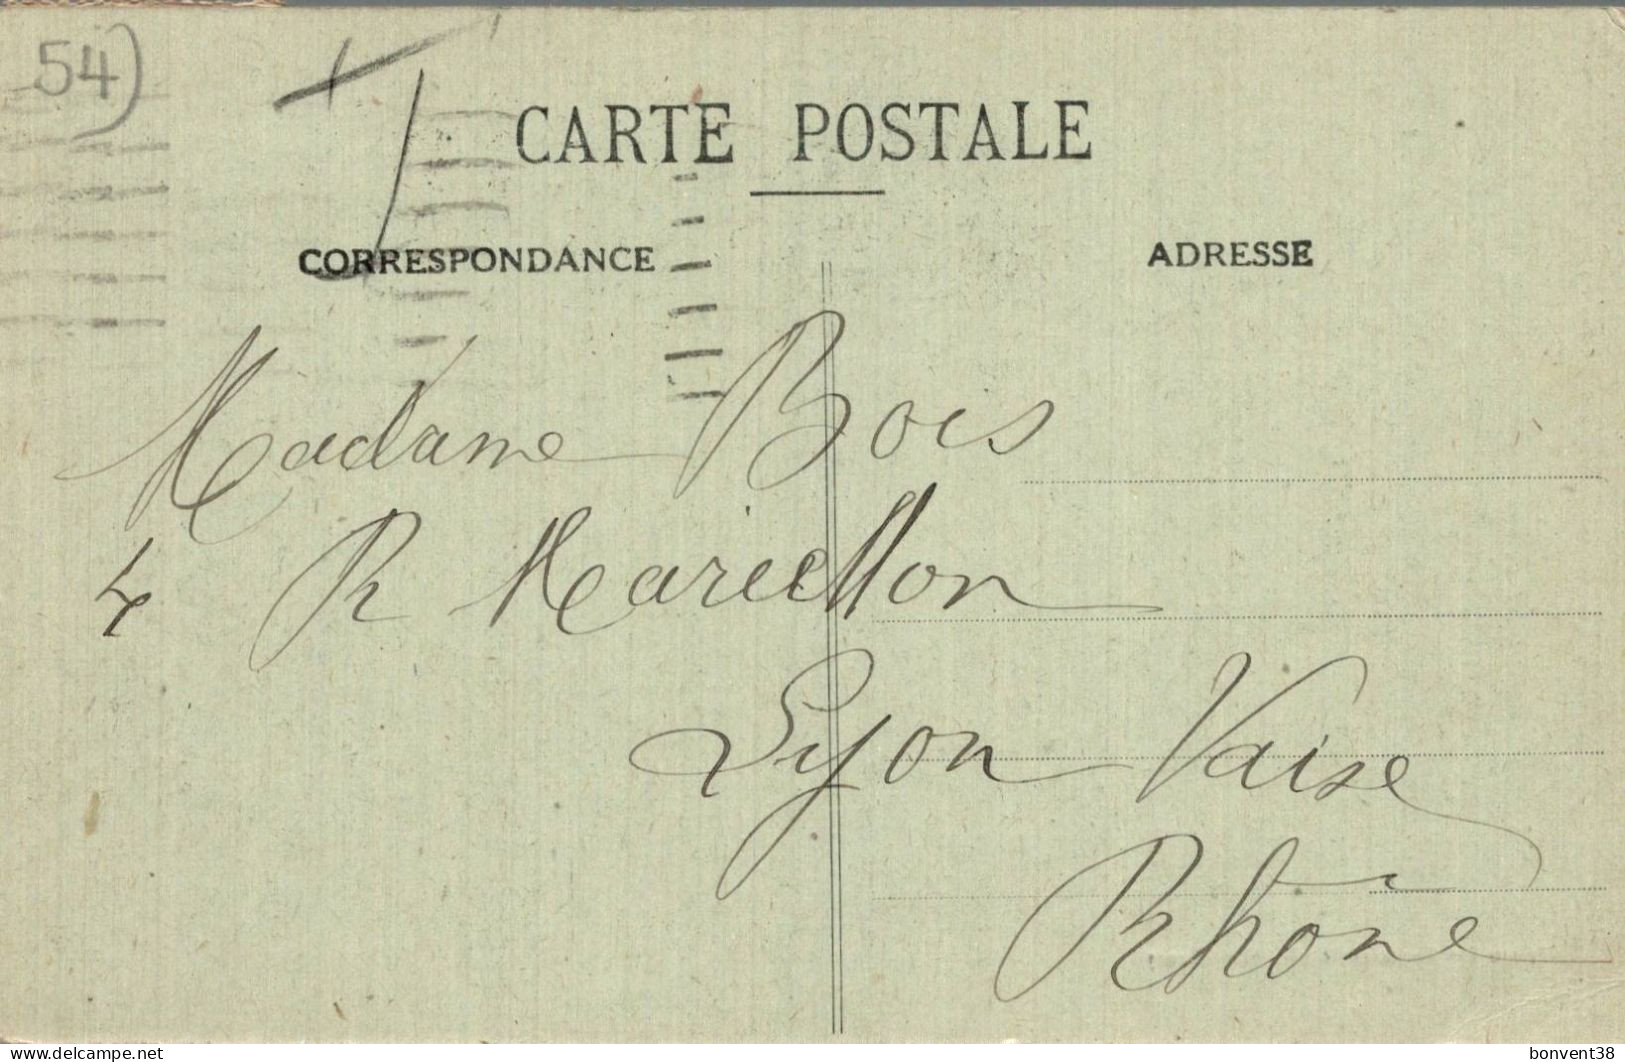 54)
CARTE POSTALE
CORRESPONDANCE
ADRESSE
Madame Bois
4 R Marietton
Lyon Vaise
Rhône
www.delcampe.net
bonvent38